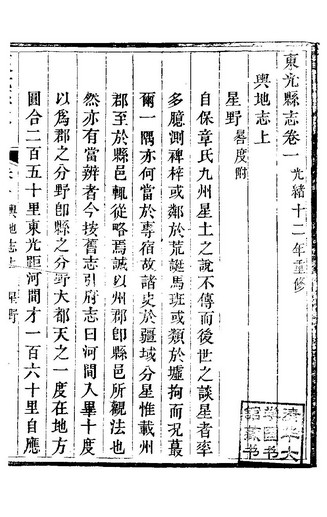 東光縣志卷一 光緒十二年重修
輿地志上
星野 晷度附
自保章氏九州星土之說不傳而後世之談星者率
多臆測裨梓或鄰於荒誕馬班或類於墟拘而況蕞
爾一隅亦何當於專宿故諸史於疆域分星惟載州
郡至於縣邑輒從略焉誠以州郡即縣邑所觀法也
然亦有當辨者今按舊志引府志曰河間入畢十度
以為郡之分野即縣之分野大都天之一度在地方
圓合二百五十里東光距河間才一百六十里自應
輿地志上 星野
清华大
学图书
馆藏书